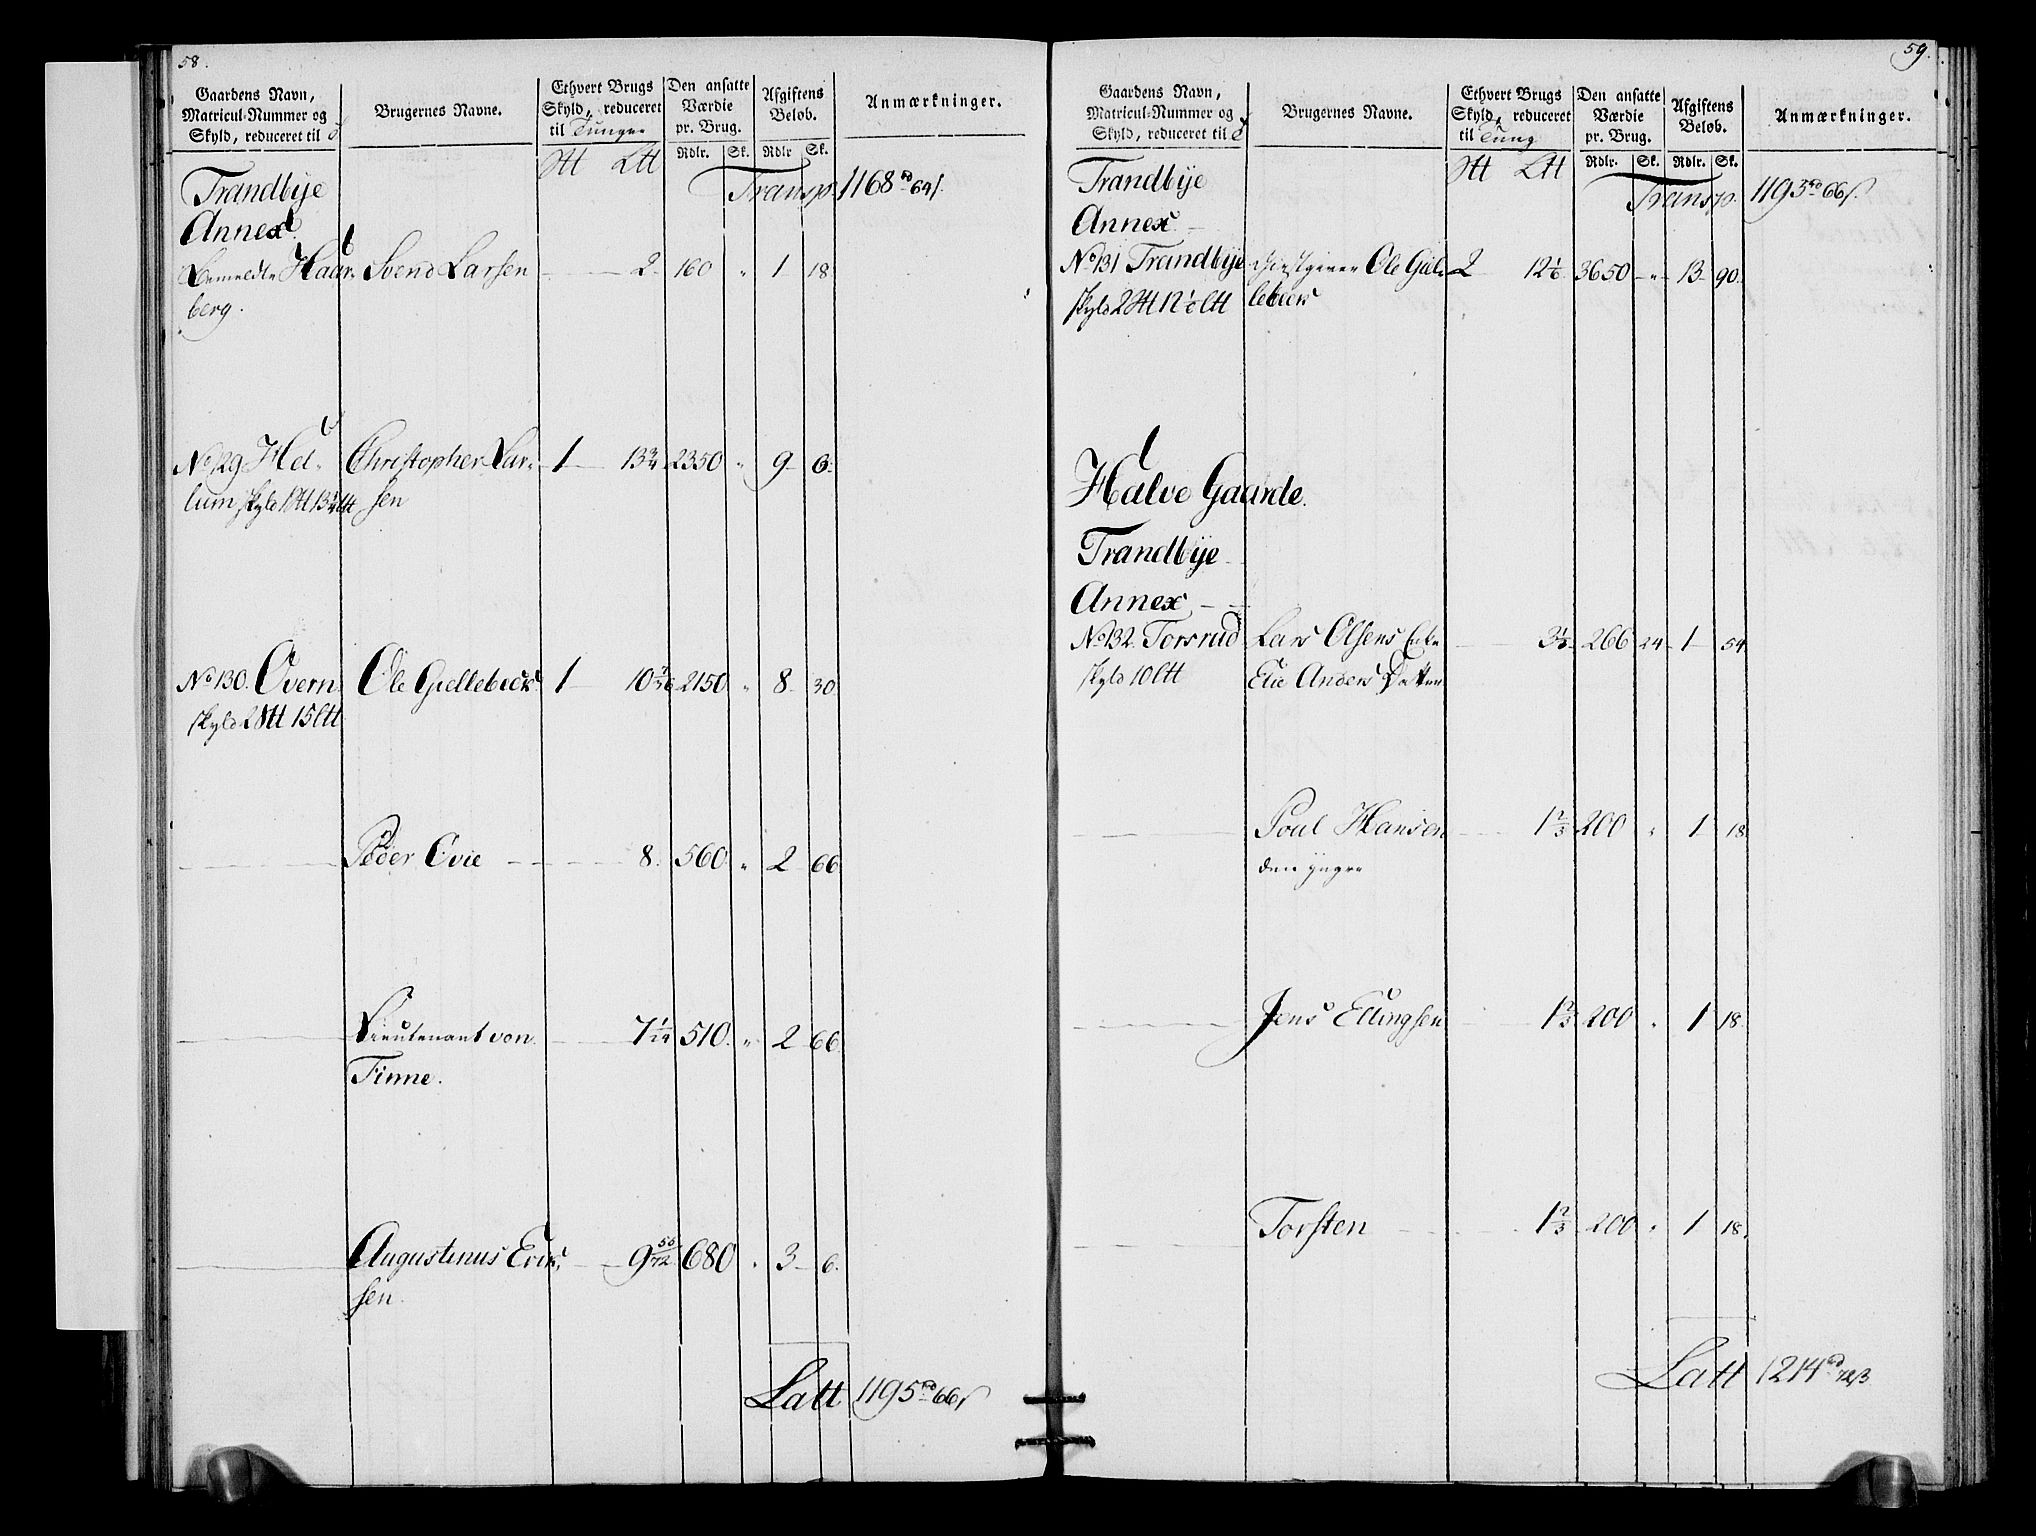 58.
Gaardens Navn, Matricul-Nummer og Skyld, reduceret til
Brugernes Navne.
Ethvert Brugs Skyld, reduceret til Tunge
Den ansatte Værdie pr. Brug.
Afgiftens Beløb.
Anmærkninger.
Stt Ltt Rdlr. Sk. Rdlr Sk.
Trandbye Transp. 1168 rd 64 s.
Annex.
Bemeldte Haar- Svend Larsen 2 160 " 1 18
berg.
No 129 Hel- Christopher Lar- 1 13 3/4 2350 " 9 6
lum skyld 1 Stt 13 3/4 Ltt sen
No 130. Overn Ole Gjellebeck 1 10 2150 " 8 30
skyld 2 Stt 15 Ltt
Peder Ovie 8. 560 " 2 66
Lieutenant von 7 510. " 2 66.
Finne.
Augustinus Erik- 9 56/72 680 " 3 6.
sen.
Latt 1195 rd 66 s
59.
Gaardens Navn, Matricul-Nummer og Skyld, reduceret til
Brugernes Navne.
Ethvert Brugs Skyld, reduceret til Tung
Den ansatte Værdie pr. Brug.
Afgiftens Beløb.
Anmærkninger.
Stt Ltt Rdlr. Sk. Rdlr. Sk.
Trandbye Transp. 1195 rd 66 s.
Annex
No 131 Trandbye Giestgiver Ole Giel- 2 12 1/6 3650 " 13 90.
skyld 2 Stt 12 1/6 Ltt lebeck
Halve Gaarde.
Trandbye
Annex
No 132. Torsrud Lars Olsens Enke 3 1/3 266 24 1 54
skyld 10 Ltt Elie Anders Datter
Poul Hansen 1 2/3 200 " 1 18
den yngre
Jens Ellingsen 1 2/3 200 " 1 18.
Torsten 1 2/3 200 " 1 18.
Latt 1214 rd 72 s